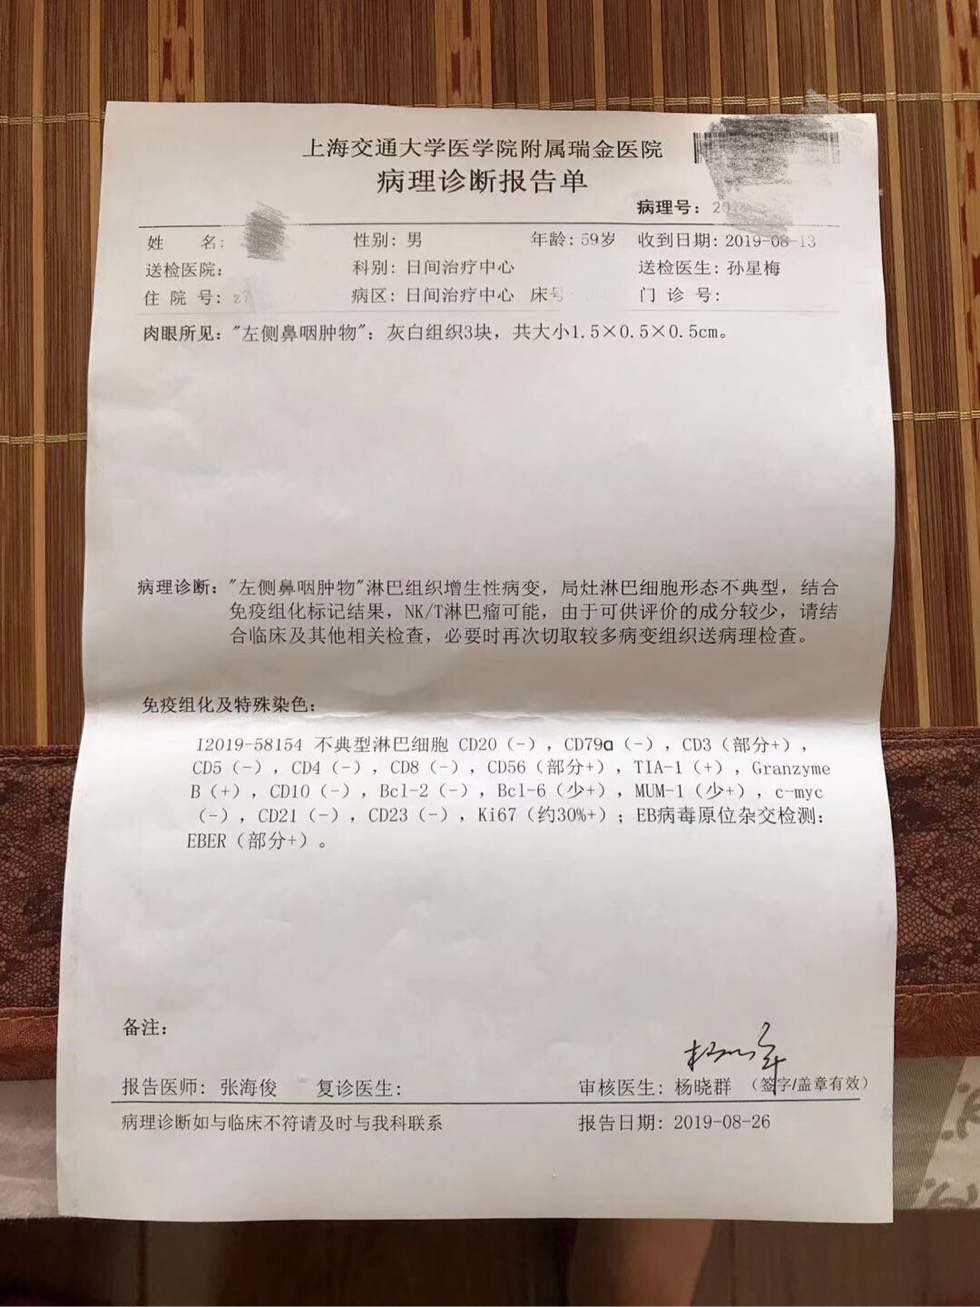 上海交通大学医学院附属瑞金医院
病理诊断报告单
病理号：
姓 名： 性别：男 年龄：59岁 收到日期：2019-08-13
送检医院： 科别：日间治疗中心 送检医生：孙星梅
住 院 号： 病区：日间治疗中心 床号 门 诊 号：
肉眼所见："左侧鼻咽肿物"：灰白组织3块，共大小1.5×0.5×0.5cm。
病理诊断："左侧鼻咽肿物"淋巴组织增生性病变，局灶淋巴细胞形态不典型，结合
免疫组化标记结果，NK/T淋巴瘤可能，由于可供评价的成分较少，请结
合临床及其他相关检查，必要时再次切取较多病变组织送病理检查。
免疫组化及特殊染色：
I2019-58154 不典型淋巴细胞 CD20（-），CD79ɑ（-），CD3（部分+），
CD5（-），CD4（-），CD8（-），CD56（部分+），TIA-1（+），Granzyme
B（+），CD10（-），Bcl-2（-），Bcl-6（少+），MUM-1（少+），c-myc
（-），CD21（-），CD23（-），Ki67（约30%+）；EB病毒原位杂交检测：
EBER（部分+）。
备注：
报告医师：张海俊 复诊医生： 审核医生：杨晓群 （签字/盖章有效）
病理诊断如与临床不符请及时与我科联系 报告日期：2019-08-26